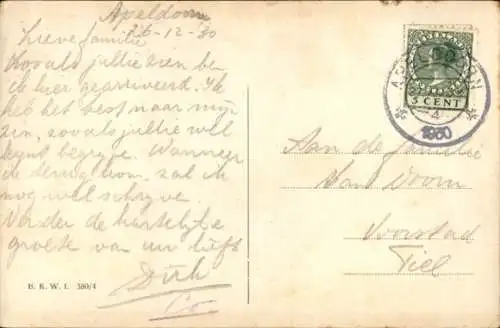 Apeldoorn
26-12-30
Lieve familie
Zooals jullie zien ben
ik hier gearriveerd. Ik
heb het best naar mijn
zin, zooals jullie wel
kunt begrijpe. Wanneer
ik terug kom, zal ik
nog wel schrijve.
Verder de hartelijke
groete van uw lieft
Dirk
Co
B. K. W. I. 380/4
5 CENT
4
1930
Aan de familie
Van Doorn
Voorstad
Tiel